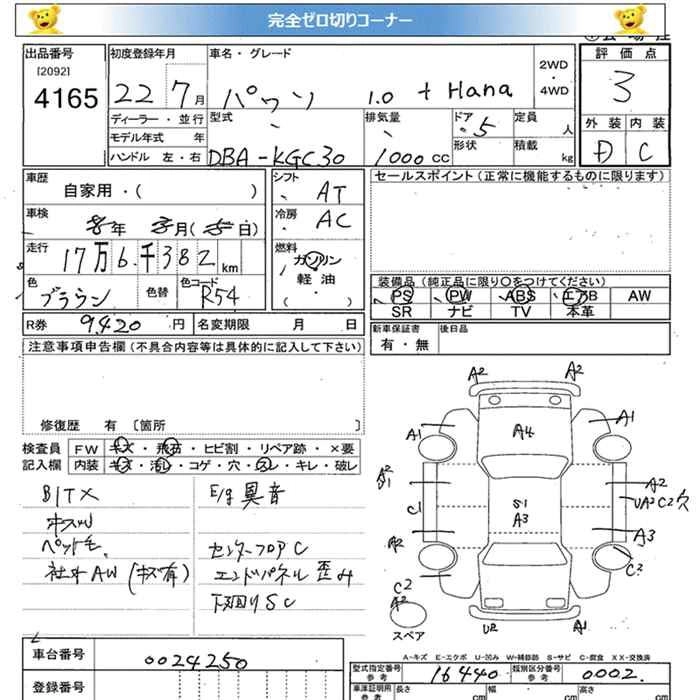 完全ゼロ切りコーナー
出品番号
[2092]
4165
初度登録年月
22 7月
ディーラー・並行
モデル年式 年
ハンドル 左・右
車名・グレード
パッソ 1.0 + Hana
2WD
4WD
型式
DBA-KGC30
排気量
1000cc
ドア 5
形状
定員 人
積載 kg
評価点
3
外装 内装
D C
車歴
自家用・( )
車検
年 月( 日)
走行
17万6千382km
色
ブラウン
色替
色コード
R54
R券 9,420円
名変期限 月 日
シフト AT
冷房 AC
燃料
ガソリン
軽油
( )
セールスポイント(正常に機能するものに限ります)
装備品(純正品に限り〇をつけてください)
PS PW ABS エアB AW
SR ナビ TV 本革
新車保証書
有・無
後日品
注意事項申告欄(不具合内容等は具体的に記入して下さい)
修復歴 有 [箇所 ]
検査員
記入欄
FW キズ・飛石・ヒビ割・リペア跡・×要
内装 キズ・汚レ・コゲ・穴・スレ・キレ・破レ
BITX
ペット毛
社外AW(キズ有)
E/g異音
センターフロアC
エンドパネル歪み
下回りSC
A2 A2
A1 A1
A4
A2
C1
S1
A3
A2
UA3 C2 穴
A3
A2
C2
C2
A2
U2 A1
スペア
A-キズ E-エクボ U-凹み W-補修跡 S-サビ C-腐食 XX-交換済
車台番号 0024250
登録番号
型式指定番号
参考
16440
類別区分番号
参考
0002
車庫証明用
参考
長さ cm
幅 cm
高さ cm